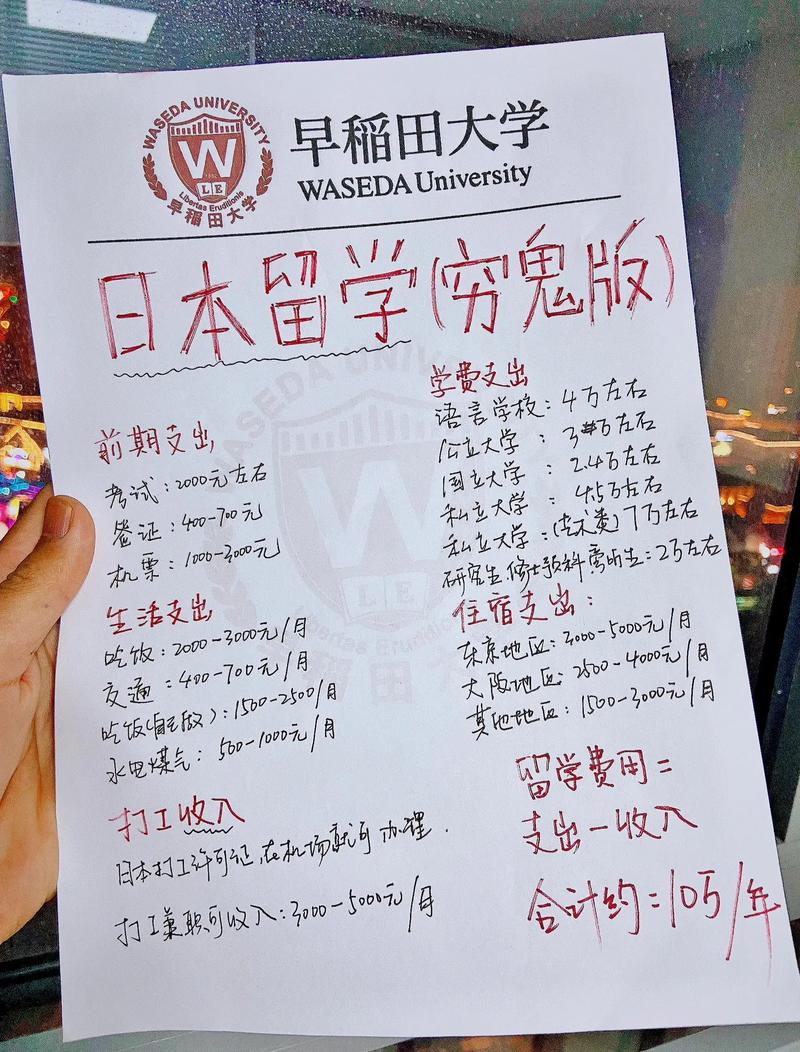 WASEDA UNIVERSITY
W
LE
Libertas Eruditionis
早稲田大学
早稲田大学
WASEDA University
日本留学(穷鬼版)
前期支出
考试:2000元左右
签证:400-700元
机票:1000-3000元
生活支出
吃饭:2000-3000元/月
交通:400-700元/月
吃饭(自己做):1500-2500/月
水电煤气:500-1000元/月
打工收入
日本打工许可证,在机场就可办理.
打工兼职可收入:3000-5000元/月
学费支出
语言学校:4万左右
公立大学:3万左右
国立大学:2.4万左右
私立大学:4.5万左右
私立大学:(艺术类)7万左右
研究生.修士预科旁听生:2万左右
住宿支出:
东京地区:3000-5000元/月
大阪地区:2500-4000元/月
其他地区:1500-3000元/月
留学费用=
支出-收入
合计约=10万/年
WASEDA UNIVERSITY
W
LE
Libertas Eruditionis
早稲田大学